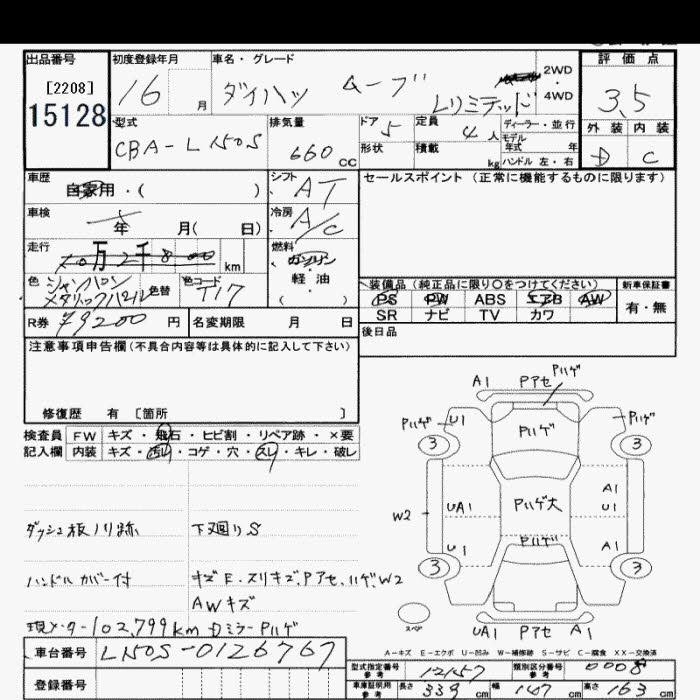 出品番号 初度登録年月 車名・グレード 評価点
[2208]
15128
16 月 ダイハツ ムーブ Lリミテッド 2WD 4WD
3.5
型式 排気量 ドア 定員 ディーラー・並行 外装 内装
CBA-L150S 660 CC 5 4人 モデル年式 年
形状 積載 kg ハンドル 左・右 D C
車歴 シフト セールスポイント (正常に機能するものに限ります)
自家用・( ) AT
車検 年 月( 日) 冷房 A/C
走行 10万2千800 km 燃料 ガソリン・軽油 ( )
色 シャンパンメタリックパール 色替 色コード T17
装備品 (純正品に限り〇をつけてください) 新車保証書
PS PW ABS エアB AW 有・無
SR ナビ TV カワ
R券 ¥9200 円 名変期限 月 日
後日品
注意事項申告欄 (不具合内容等は具体的に記入して下さい)
修復歴 有 [箇所 ]
検査員記入欄 FW キズ・飛石・ヒビ割・リペア跡・×要
内装 キズ・汚れ・コゲ・穴・スレ・キレ・破レ
ダッシュ板ノリ跡 下廻りS
ハンドルカバー付 キズE・スリキズ、Pアセ、ハゲ、W2
AWキズ
現メーター102,799km Dミラー Pハゲ
A1 Pアセ Pハゲ
Pハゲ U1 Pハゲ Pハゲ
3 3
W2 UA1 Pハゲ大 A1 U1
U1 Pハゲ A1
3 3
スペア UA1 Pアセ A1
A-キズ E-エクボ U-凹み W-補修跡 S-サビ C-腐食 XX-交換済
車台番号 L150S-0126767
登録番号
型式指定番号 参考 12157 類別区分番号 参考 0008
車庫証明用 参考 長さ 339 cm 幅 147 cm 高さ 163 cm